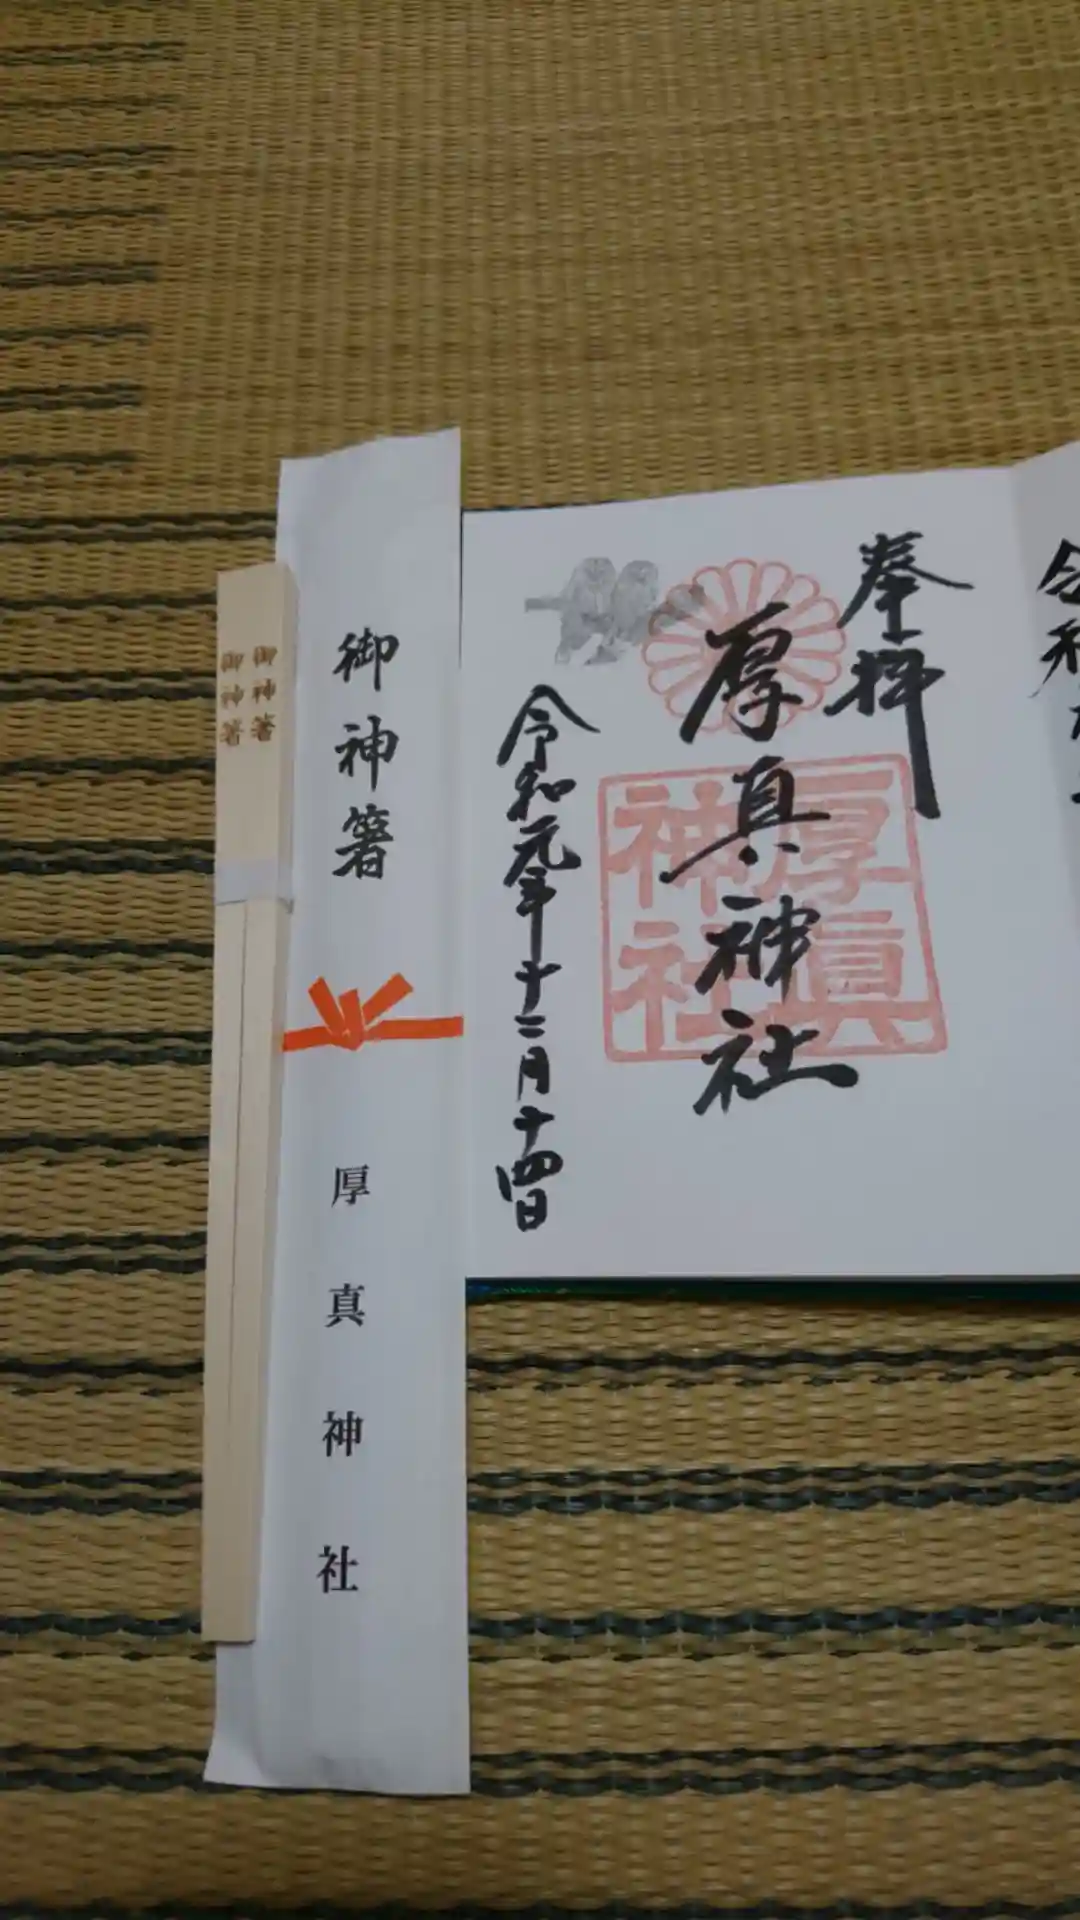 令和
奉拝
厚真神社
厚真
神社
令和元年十二月十四日
御神箸
厚真神社
御神箸
御神箸